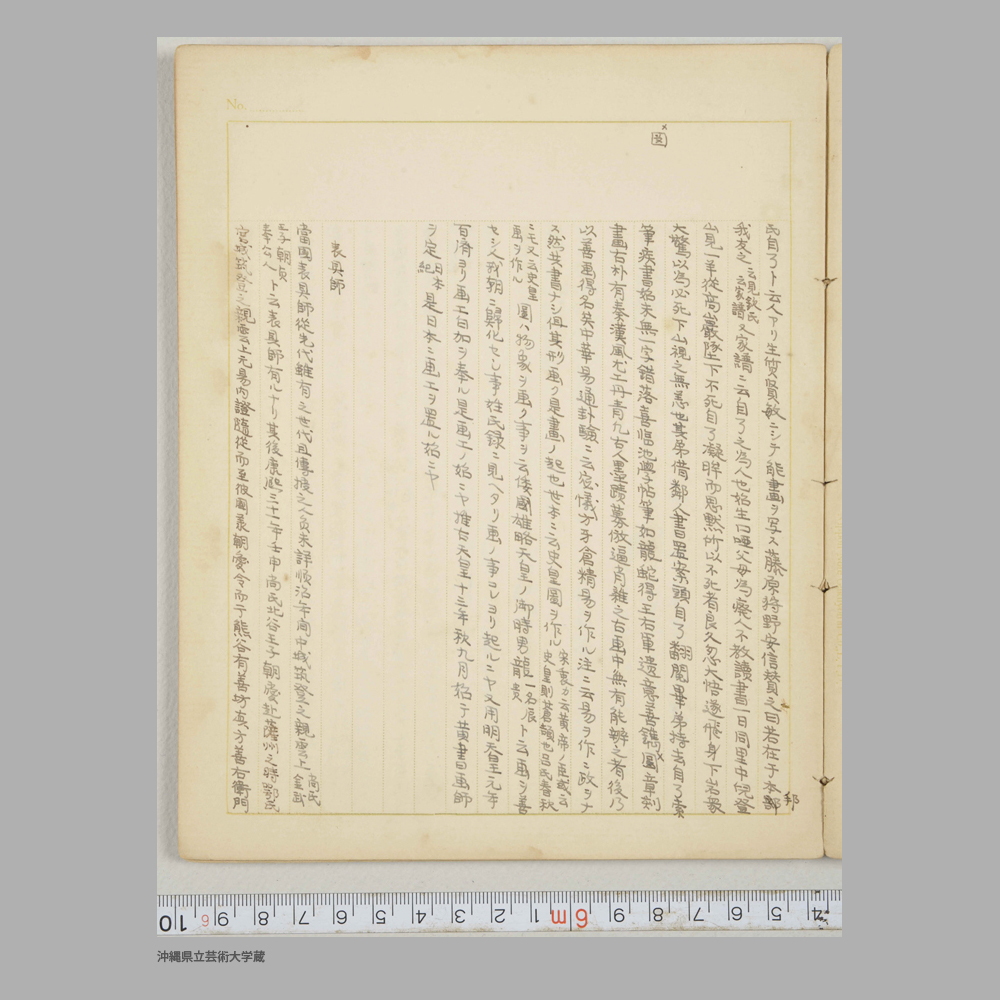 No.
圖
氏自了ト云人アリ生質賢敏ニシテ能畫ヲ写ス藤原狩野安信賛之曰若在于本邦
我友之 云見欽氏云家譜 又家譜ニ云自了之為人也始生口唖父母為癈人不教讀書一日同里中
見一羊從高巌墜下不死自了凝眸而思黙所以不死者良久忽大悟遂飛身下岩衆
大驚以為必死下山視之無恙也其弟借鄰人書置案頭自了翻閲畢弟持去自了索
筆疾書始末無一字錯落喜臨池學帖筆如龍蛇得王右軍遺意善鐫圖章刻
畫古朴有秦漢風尤工丹青凡古人墨蹟摹倣逼肖雜之古画中無有能辨之者後乃
以善画得名矣中華易通卦驗ニ云宓犧方牙倉精易ヲ作ル注ニ云易ヲ作ニ政ヲナ
ス然共書ナシ但其形画ク是畫ノ起也世本ニ云史皇圖ヲ作ル 宋衷カ云黄帝ノ臣或云史皇則蒼頡也呂氏春秋
ニモ又云史皇画ヲ作ル 圖ハ物象ヲ画ク事ヲ云倭國雄略天皇ノ御時男龍 一名辰貴 ト云画ヲ善
セシ人我朝ニ歸化セシ事姓氏録ニ見ヘタリ画ノ事コレヨリ起ルニヤ又用明天皇元年
百濟ヨリ画工白加ヲ奉ル是画工ノ始ニヤ推古天皇十二年秋九月始テ黄書日画師
ヲ定 日本紀 是日本ニ画工ヲ置ル始ニヤ
表具師
當國表具師從先代雖有之世代且傳授之人負未詳順治年間中城筑登之親雲上 向氏金武
王子朝貞奉公人 ト云表具師有ルナリ其後康熙三十一年壬申尚氏北谷王子朝愛赴薩州之時鄂氏
宮城筑登之親雲上元易内證隨從而至彼國最朝愛令而于熊谷有善坊真方善右衛門
沖縄県立芸術大学蔵